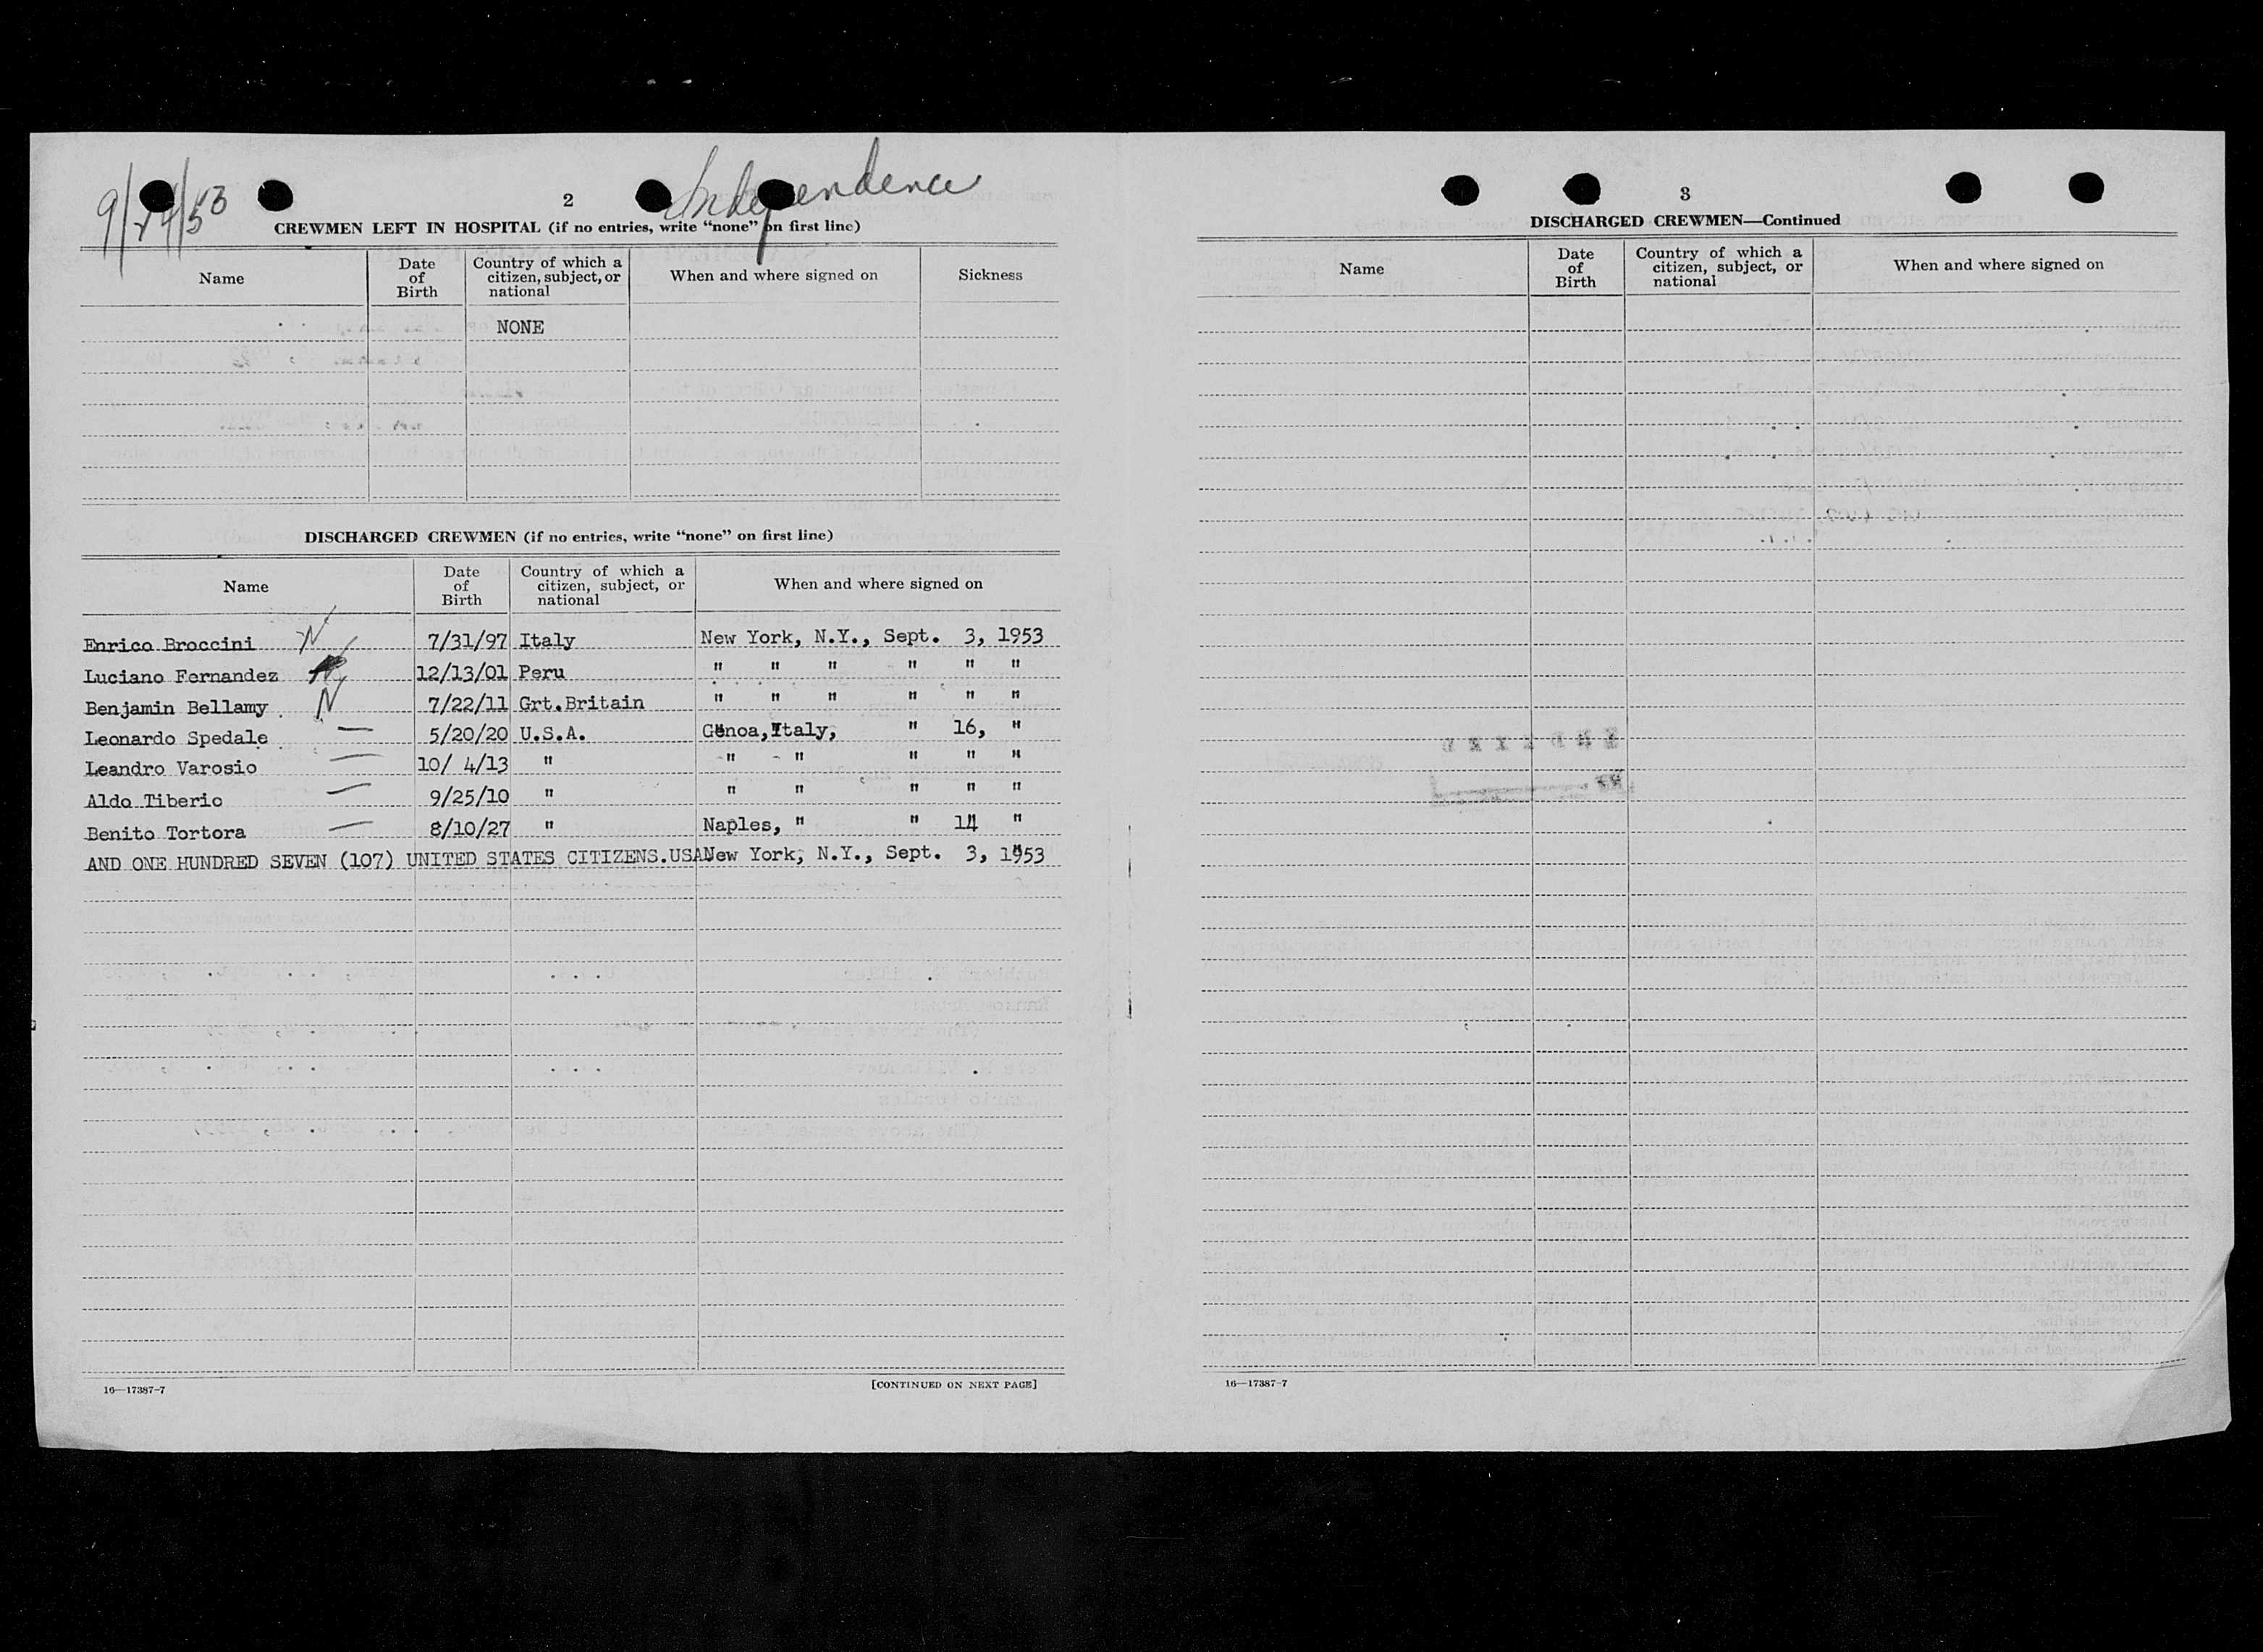 9/24/53
Independence
2
CREWMEN LEFT IN HOSPITAL (if no entries, write “none” on first line)
Name
Date of Birth
Country of which a citizen, subject, or national
When and where signed on
Sickness
NONE
DISCHARGED CREWMEN (if no entries, write “none” on first line)
Name
Date of Birth
Country of which a citizen, subject, or national
When and where signed on
Enrico Broccini N 7/31/97 Italy New York, N.Y., Sept. 3, 1953
Luciano Fernandez N 12/13/01 Peru " " " " " "
Benjamin Bellamy N 7/22/11 Grt.Britain " " " " " "
Leonardo Spedale — 5/20/20 U.S.A. Genoa, Italy, " 16, "
Leandro Varosio — 10/ 4/13 " " " " " "
Aldo Tiberio — 9/25/10 " " " " " "
Benito Tortora — 8/10/27 " Naples, " " 14 "
AND ONE HUNDRED SEVEN (107) UNITED STATES CITIZENS.USA New York, N.Y., Sept. 3, 1953
16—17387-7
[CONTINUED ON NEXT PAGE]
3
DISCHARGED CREWMEN—Continued
Name
Date of Birth
Country of which a citizen, subject, or national
When and where signed on
16—17387-7